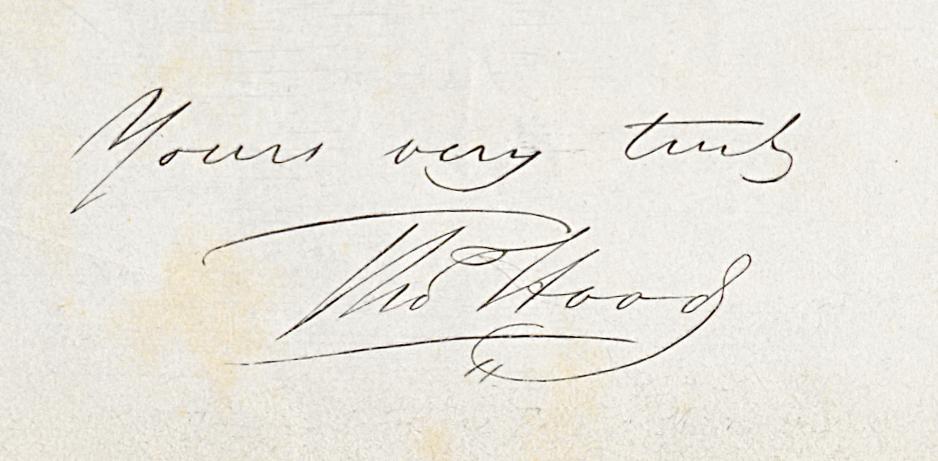 Yours very truly
Thos Hood